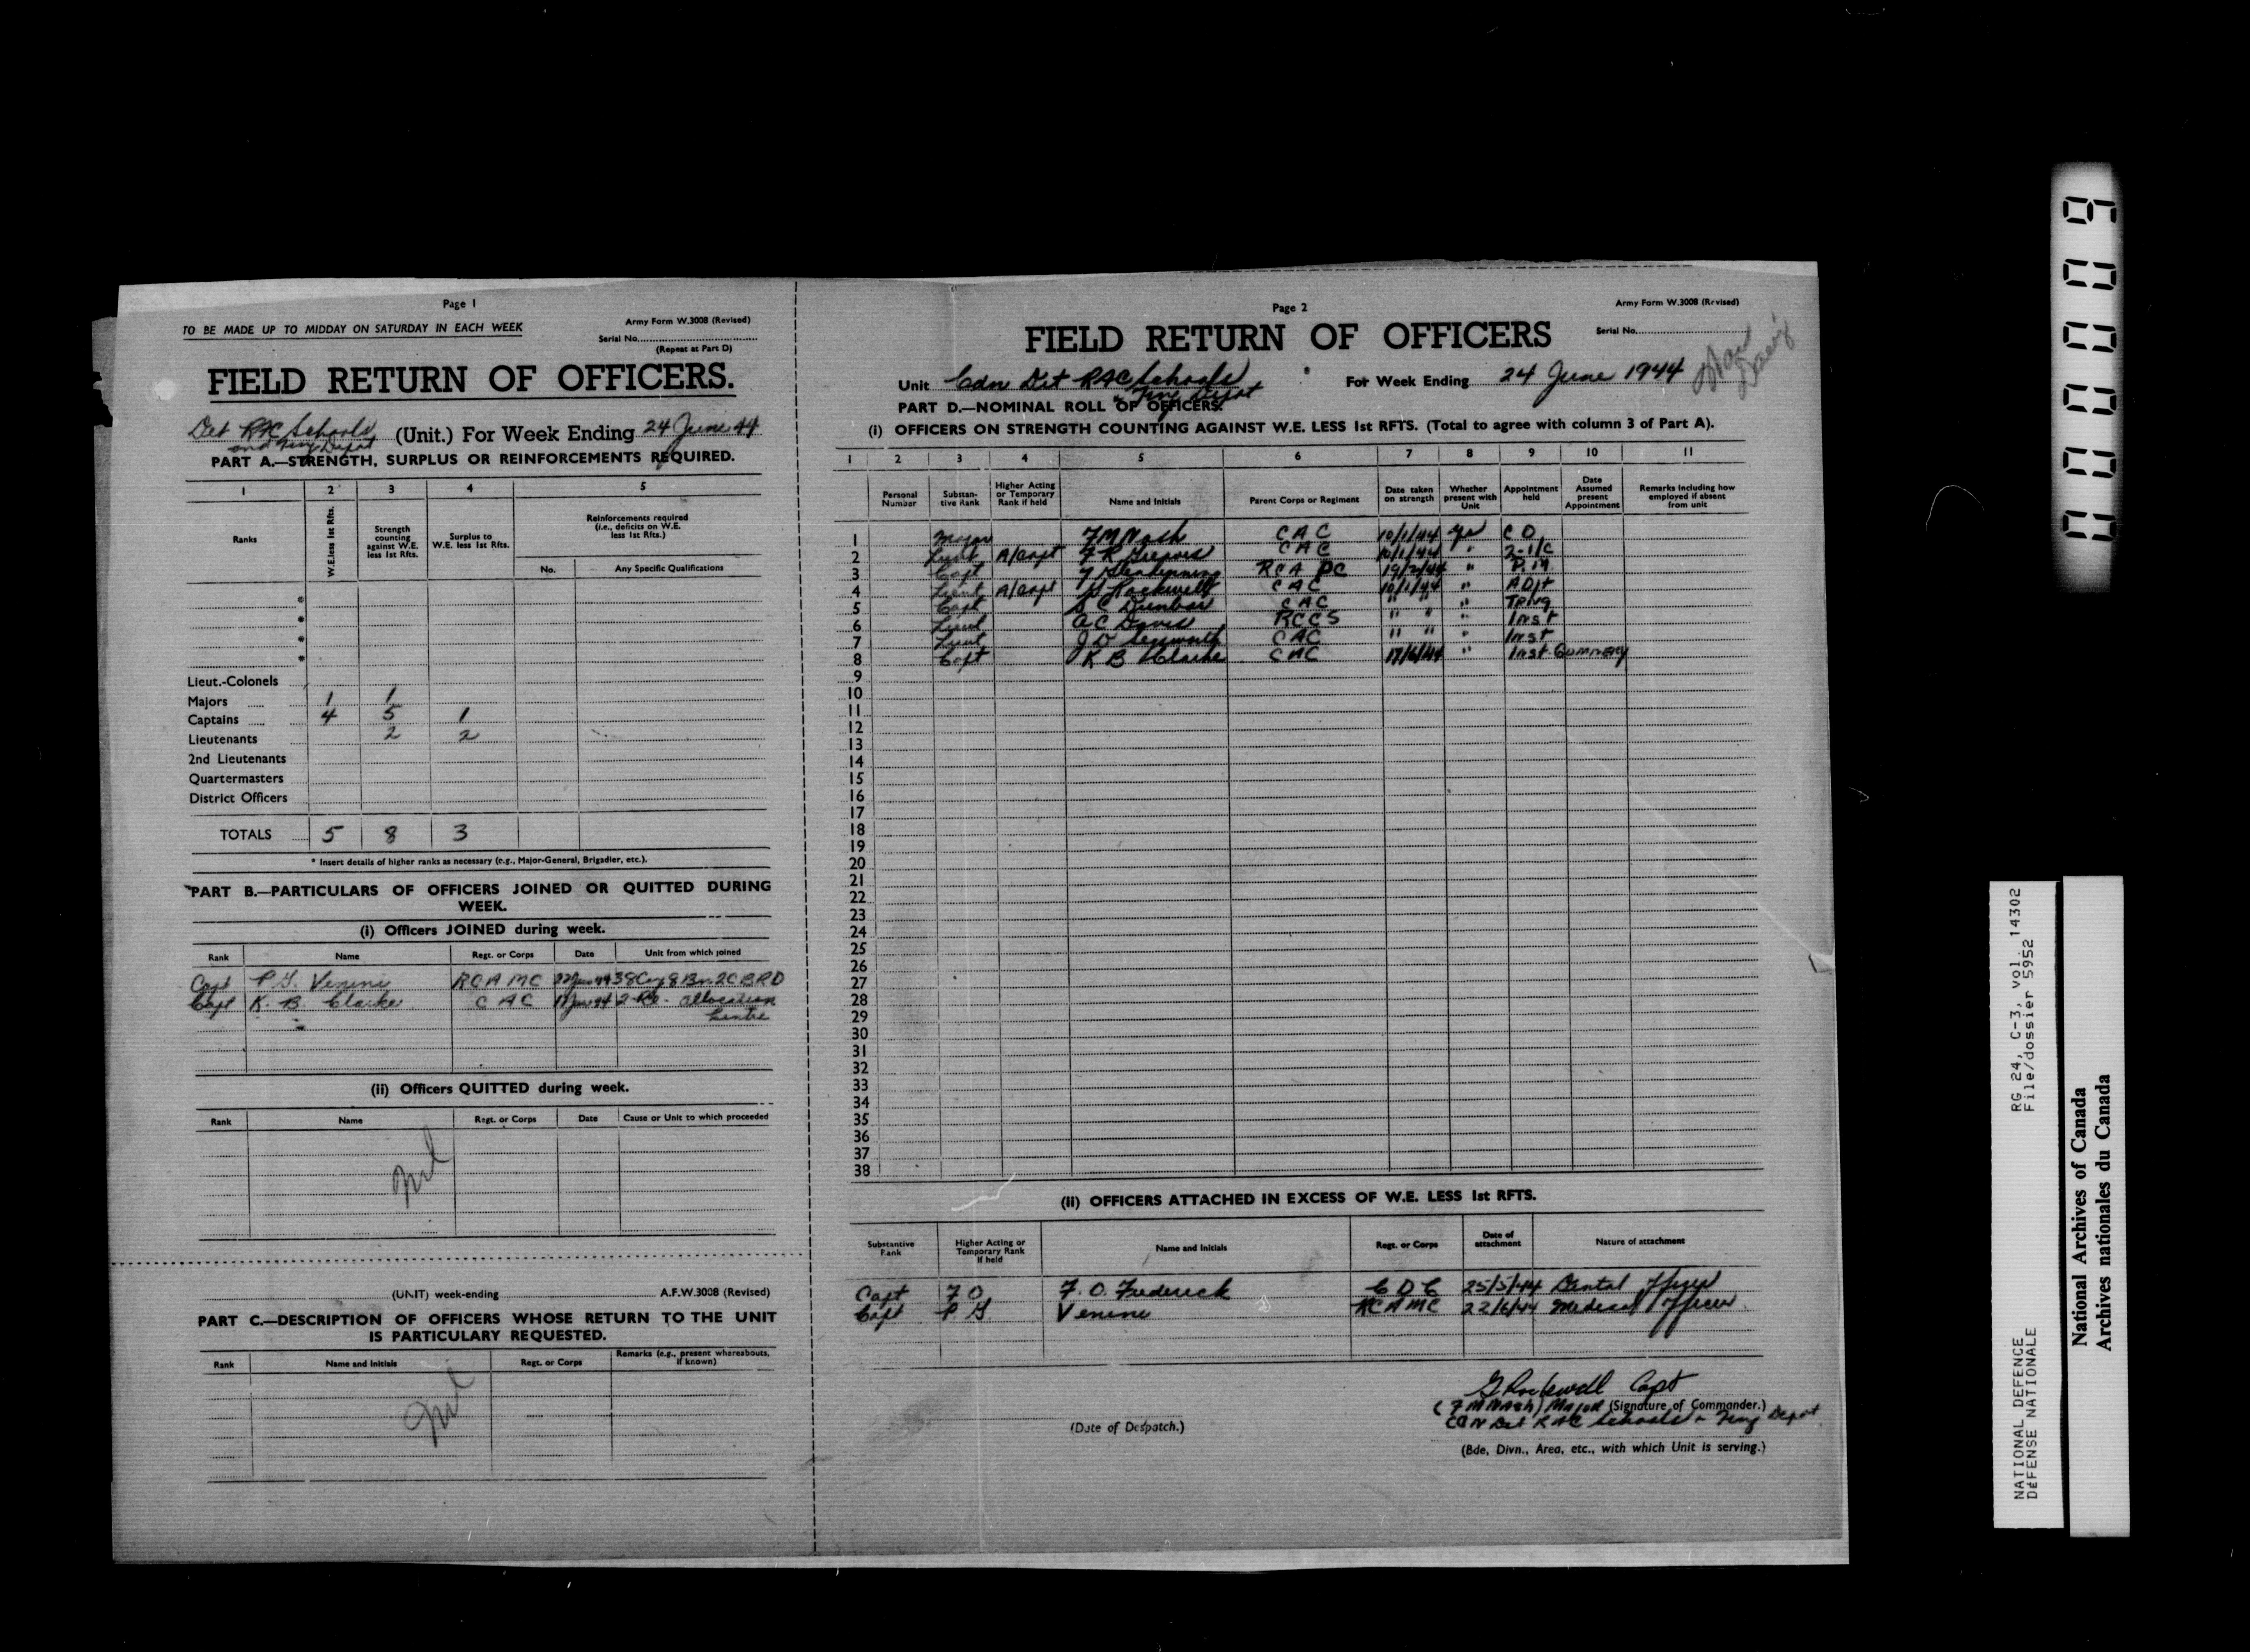 Page 1
TO BE MADE UP TO MIDDAY ON SATURDAY IN EACH WEEK
Army Form W.3008 (Revised)
Serial No.
(Repeat at Part D)
FIELD RETURN OF OFFICERS.
Det RAC Schools (Unit.) For Week Ending 24 June 44
and Trng Depot
PART A.—STRENGTH, SURPLUS OR REINFORCEMENTS REQUIRED.
1 2 3 4 5
Ranks W.E. less 1st Rfts. Strength counting against W.E. less 1st Rfts. Surplus to W.E. less 1st Rfts. Reinforcements required (i.e., deficits on W.E. less 1st Rfts.)
No. Any Specific Qualifications
*
*
*
*
Lieut.-Colonels
Majors 1 1
Captains 4 5 1
Lieutenants 2 2
2nd Lieutenants
Quartermasters
District Officers
TOTALS 5 8 3
* Insert details of higher ranks as necessary (e.g., Major-General, Brigadier, etc.).
PART B.—PARTICULARS OF OFFICERS JOINED OR QUITTED DURING
WEEK.
(i) Officers JOINED during week.
Rank Name Regt. or Corps Date Unit from which joined
Capt P.G. Venini RCAMC 22 June 44 38 Coy 8 Bn 2CBRD
Capt K. B. Clarke CAC 17 June 44 allocation
Centre
(ii) Officers QUITTED during week.
Rank Name Regt. or Corps Date Cause or Unit to which proceeded
Nil
(UNIT) week-ending A.F.W.3008 (Revised)
PART C.—DESCRIPTION OF OFFICERS WHOSE RETURN TO THE UNIT
IS PARTICULARY REQUESTED.
Rank Name and Initials Regt. or Corps Remarks (e.g., present whereabouts, if known)
Nil
Page 2
Army Form W.3008 (Revised)
FIELD RETURN OF OFFICERS
Serial No.
Unit Cdn Det RAC Schools For Week Ending 24 June 1944
& Trng Depot
PART D.—NOMINAL ROLL OF OFFICERS.
(i) OFFICERS ON STRENGTH COUNTING AGAINST W.E. LESS 1st RFTS. (Total to agree with column 3 of Part A).
1 2 3 4 5 6 7 8 9 10 11
Personal Number Substantive Rank Higher Acting or Temporary Rank if held Name and Initials Parent Corps or Regiment Date taken on strength Whether present with Unit Appointment held Date Assumed present Appointment Remarks including how employed if absent from unit
1 Major F M Nash CAC 10/1/44 yes C O
2 Lieut A/Capt F R Greaves CAC 10/1/44 " 2-i/c
3 Capt RCAPC "
4 Lieut A/Capt G Rockwell CAC 10/1/44 " ADjt
5 Capt S C Dunbar CAC " " " TRNG
6 Lieut A C Davis RCCS " " " Inst
7 Lieut J D CAC " " " Inst
8 Capt K B Clarke CAC 17/6/44 " Inst Gunnery
9
10
11
12
13
14
15
16
17
18
19
20
21
22
23
24
25
26
27
28
29
30
31
32
33
34
35
36
37
38
(ii) OFFICERS ATTACHED IN EXCESS OF W.E. LESS 1st RFTS.
Substantive Rank Higher Acting or Temporary Rank if held Name and Initials Regt. or Corps Date of attachment Nature of attachment
Capt F O F. O. Frederick C D C 25/5/44 Dental Officer
Capt P G Venini RCAMC 22/6/44 Medical Officer
G Rockwell Capt
(F M Nash) Major (Signature of Commander.)
CDN Det RAC Schools & Trng Depot
(Date of Despatch.)
(Bde, Divn., Area, etc., with which Unit is serving.)
000009
RG 24, C-3, vol. 14302
File/dossier 5952
NATIONAL DEFENCE
DÉFENSE NATIONALE
National Archives of Canada
Archives nationales du Canada